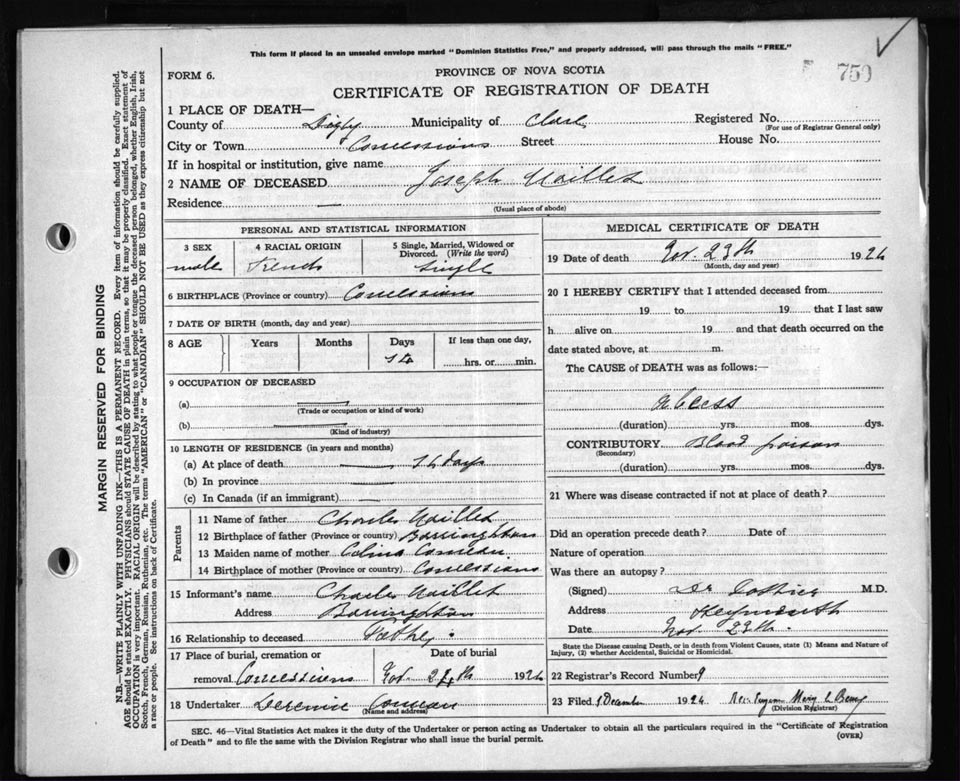 This form if placed in an unsealed envelope marked "Dominion Statistics Free," and properly addressed, will pass through the mails "FREE."
FORM 6.
PROVINCE OF NOVA SCOTIA
750
CERTIFICATE OF REGISTRATION OF DEATH
1 PLACE OF DEATH—
County of Digby Municipality of Clare Registered No.
(For use of Registrar General only)
City or Town Concessions Street House No.
If in hospital or institution, give name
2 NAME OF DECEASED Joseph
Residence —
(Usual place of abode)
PERSONAL AND STATISTICAL INFORMATION
3 SEX 4 RACIAL ORIGIN 5 Single, Married, Widowed or Divorced. (Write the word)
male French Single
6 BIRTHPLACE (Province or country) Concessions
7 DATE OF BIRTH (month, day and year)
8 AGE Years Months Days If less than one day,
14 hrs. or min.
9 OCCUPATION OF DECEASED
(a) —
(Trade or occupation or kind of work)
(b) —
(Kind of industry)
10 LENGTH OF RESIDENCE (in years and months)
(a) At place of death 14 days
(b) In province —
(c) In Canada (if an immigrant) —
Parents
11 Name of father Charles
12 Birthplace of father (Province or country) Barrington
13 Maiden name of mother Comeau
14 Birthplace of mother (Province or country) Concessions
15 Informant's name Charles
Address Barrington
16 Relationship to deceased Father
17 Place of burial, cremation or removal Concessions
Date of burial
Nov. 24th 1926
18 Undertaker Comeau
(Name and address)
MEDICAL CERTIFICATE OF DEATH
19 Date of death Nov. 23th 1926
(Month, day and year)
20 I HEREBY CERTIFY that I attended deceased from
19 to 19 that I last saw
h alive on 19 and that death occurred on the
date stated above, at m.
The CAUSE of DEATH was as follows:—
Abcess
(duration) yrs. mos. dys.
CONTRIBUTORY Blood poison
(Secondary)
(duration) yrs. mos. dys.
21 Where was disease contracted if not at place of death?
Did an operation precede death? Date of
Nature of operation
Was there an autopsy?
(Signed) Dr M.D.
Address Weymouth
Date Nov. 23th.
State the Disease causing Death, or in death from Violent Causes, state (1) Means and Nature of
Injury, (2) whether Accidental, Suicidal or Homicidal.
22 Registrar's Record Number 9
23 Filed 1 December 1926
(Division Registrar)
SEC. 46—Vital Statistics Act makes it the duty of the Undertaker or person acting as Undertaker to obtain all the particulars required in the "Certificate of Registration
of Death" and to file the same with the Division Registrar who shall issue the burial permit.
(OVER)
MARGIN RESERVED FOR BINDING
N.B.—WRITE PLAINLY WITH UNFADING INK—THIS IS A PERMANENT RECORD. Every item of information should be carefully supplied.
AGE should be stated EXACTLY. PHYSICIANS should STATE CAUSE OF DEATH in plain terms, so that it may be properly classified. Exact statement of
OCCUPATION is very important. RACIAL ORIGIN will be described by stating to what people or tongue the deceased person belonged, whether English, Irish,
Scotch, French, German, Russian, Ruthenian, etc. The terms "AMERICAN" or "CANADIAN" SHOULD NOT BE USED as they express citizenship but not
a race or people. See instructions on back of Certificate.